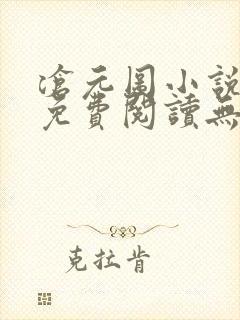 滄元圖小說
免費閱讀無
克拉肯